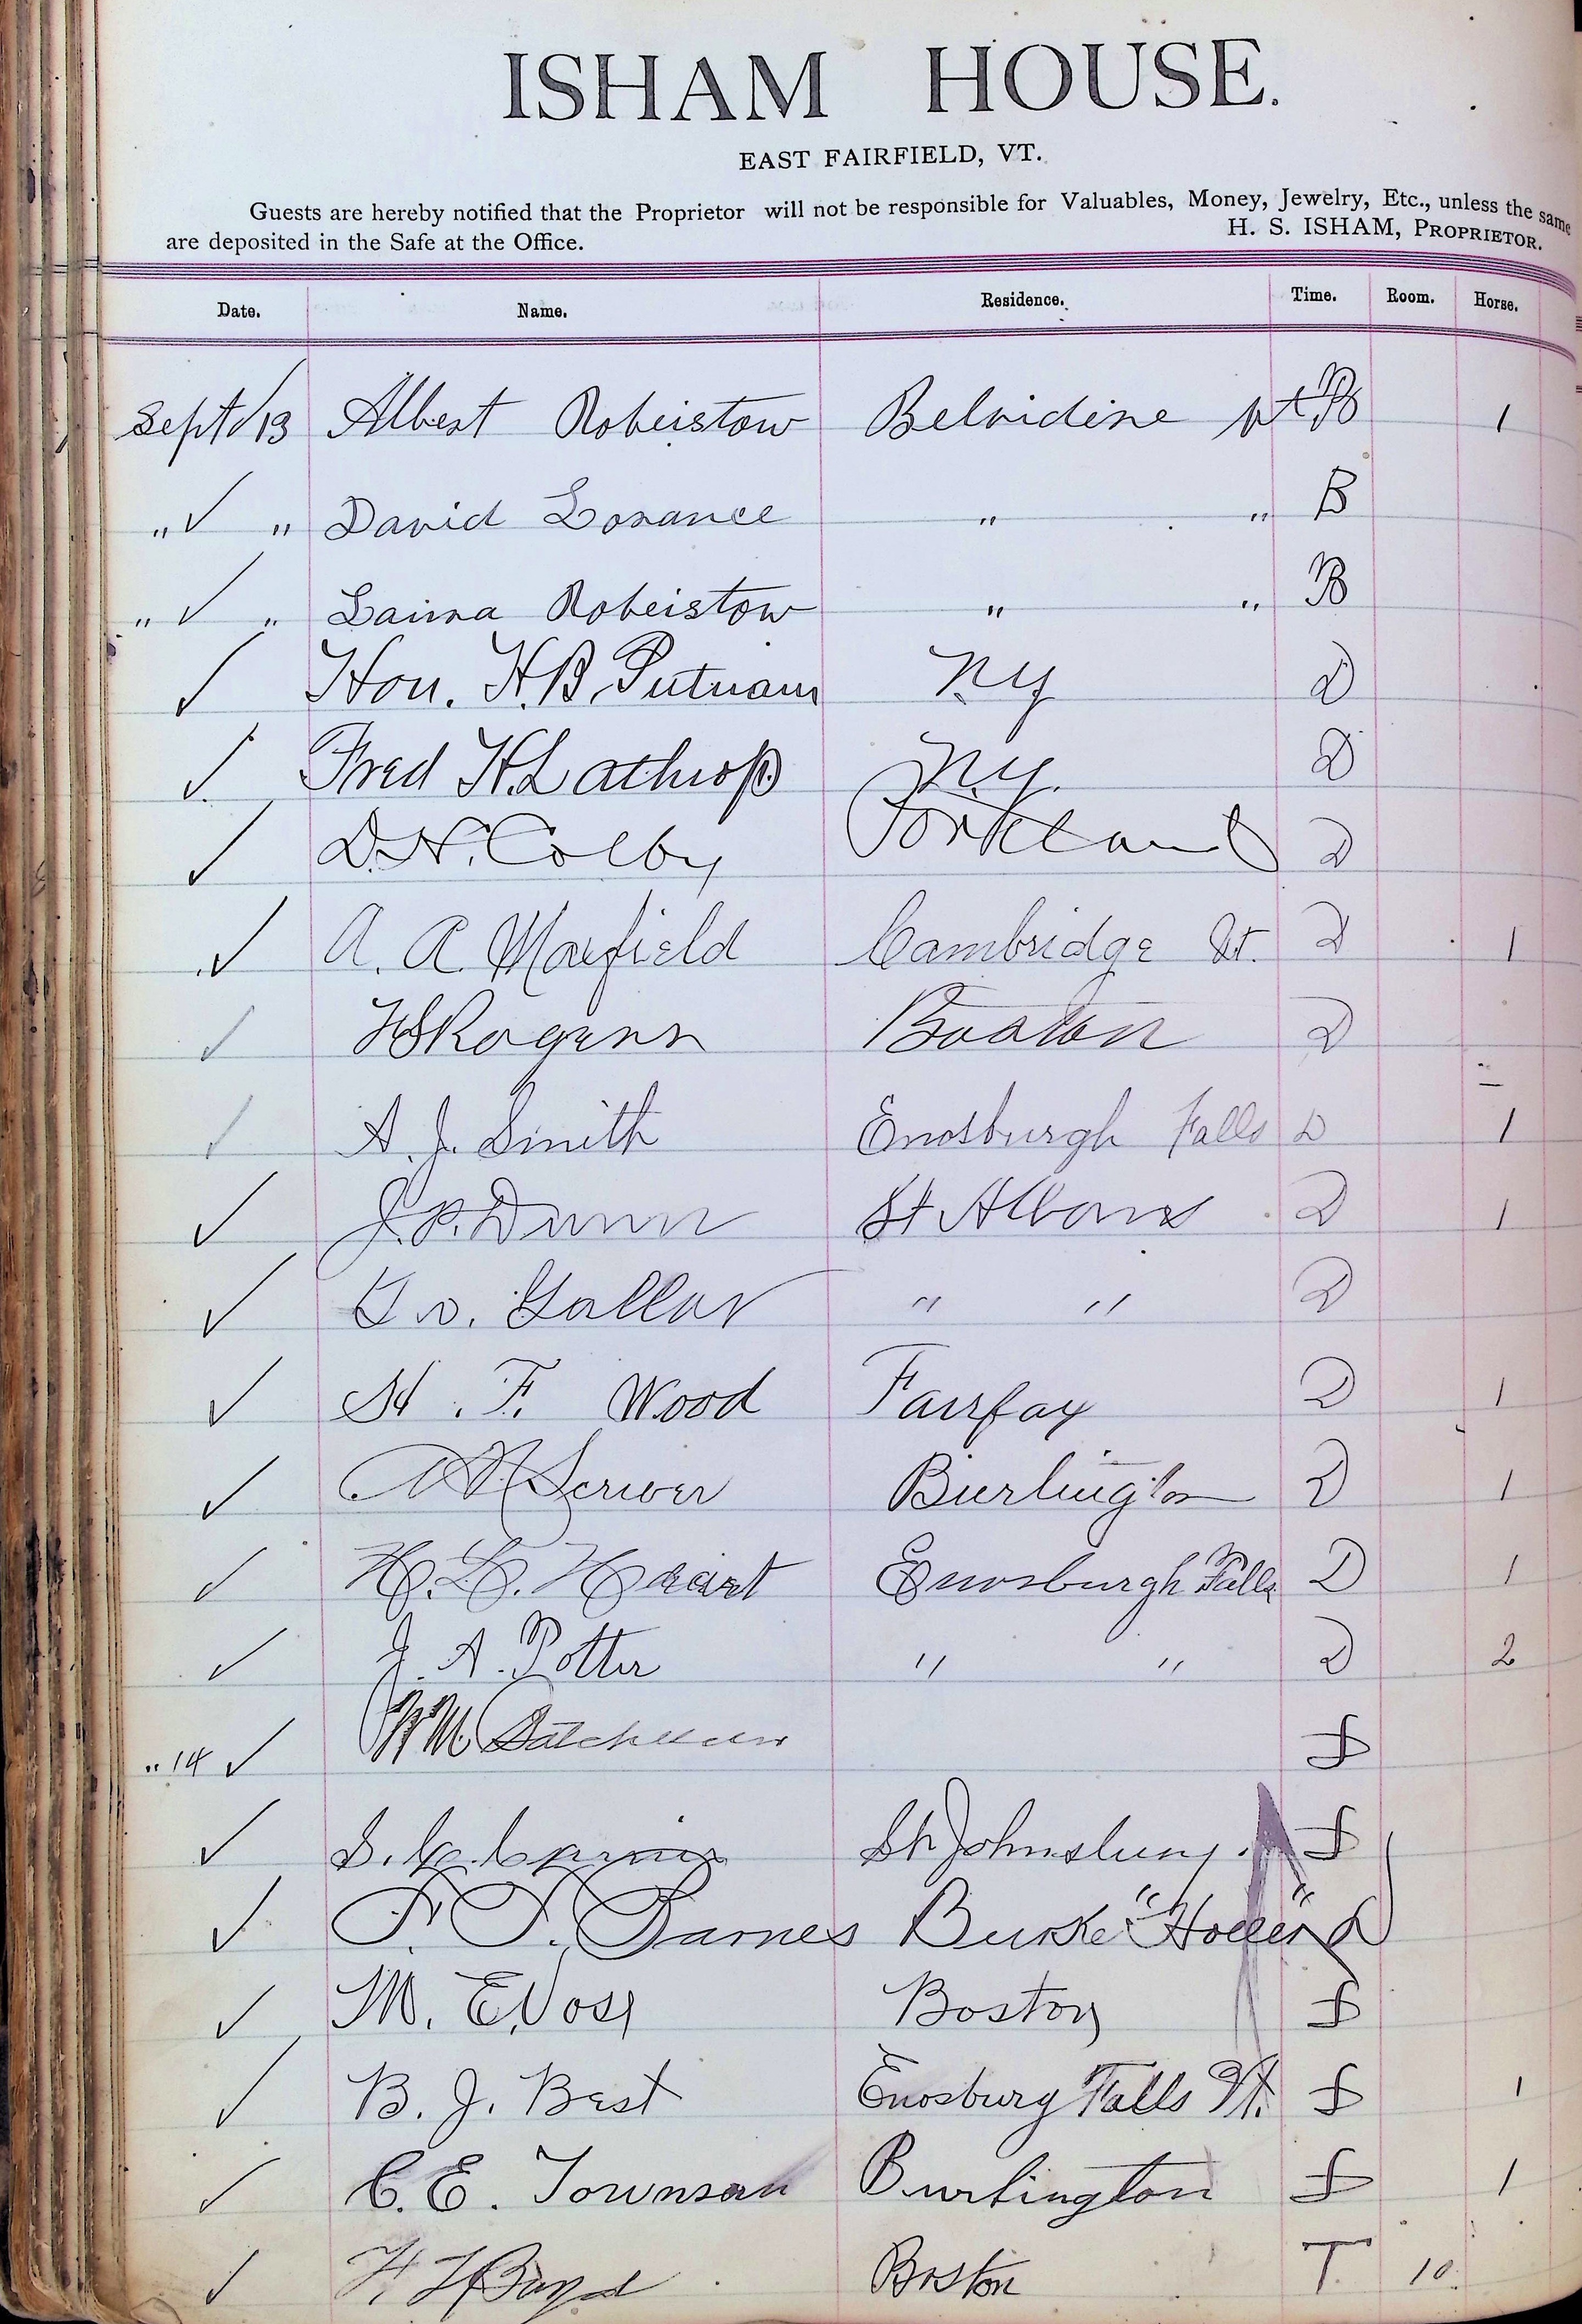 ISHAM HOUSE.
EAST FAIRFIELD, VT.
Guests are hereby notified that the Proprietor will not be responsible for Valuables, Money, Jewelry, Etc., unless the same
are deposited in the Safe at the Office. H. S. ISHAM, PROPRIETOR.
Date. Name. Residence. Time. Room. Horse.
Sept 13 Albert Robeistow Belvidere Vt B 1
" " David Lorance " " B
" " Robeistow " " B
Hon. H.B. Putnam N.Y D
Fred H. Lathrop N.Y. D
D.N. Colby Portland D
A. A. Maxfield Cambridge Vt. D 1
HS Rogers Boston D
A. J. Smith Enosburgh Falls D 1
J.P. Dunn St Albans D 1
Gallar " " D
H. F. Wood Fairfax D 1
Scriver Burlington D 1
H. L. Burlington
Enosburgh Falls D 1
J. A. Potter " " D 2
" 14 WM D
S. C. St Johnsbury.
Barnes Burke "
M. E. Vose Boston
B. J. Best Enosburg Falls Vt. 1
C. E. Townson Burlington 1
Boyd Boston T 10